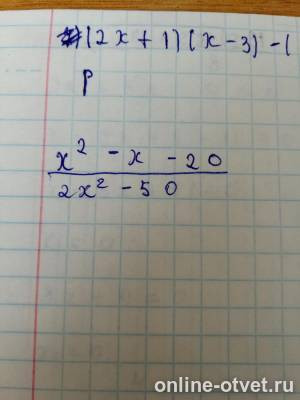 (2x + 1)(x - 3) - (
p
x² - x - 20
2x² - 50
online-otvet.ru